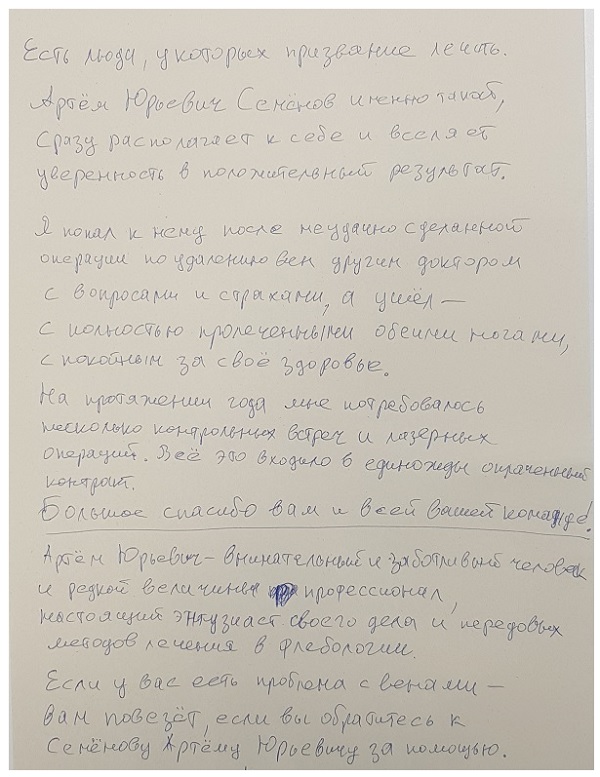 Есть люди, у которых призвание лечить.
Артём Юрьевич Семёнов именно такой,
сразу располагает к себе и вселяет
уверенность в положительный результат.
Я попал к нему после неудачно сделанной
операции по удалению вен другим доктором
с вопросами и страхами, а ушёл —
с полностью пролеченными обеими ногами,
спокойным за своё здоровье.
На протяжении года мне потребовалось
несколько контрольных встреч и лазерных
операций. Всё это входило в единожды оплаченный
контракт.
Большое спасибо вам и всей вашей команде!
Артём Юрьевич - внимательный и заботливый человек
и редкой величины профессионал,
настоящий энтузиаст своего дела и передовых
методов лечения в флебологии.
Если у вас есть проблема с венами —
вам повезёт, если вы обратитесь к
Семёнову Артёму Юрьевичу за помощью.